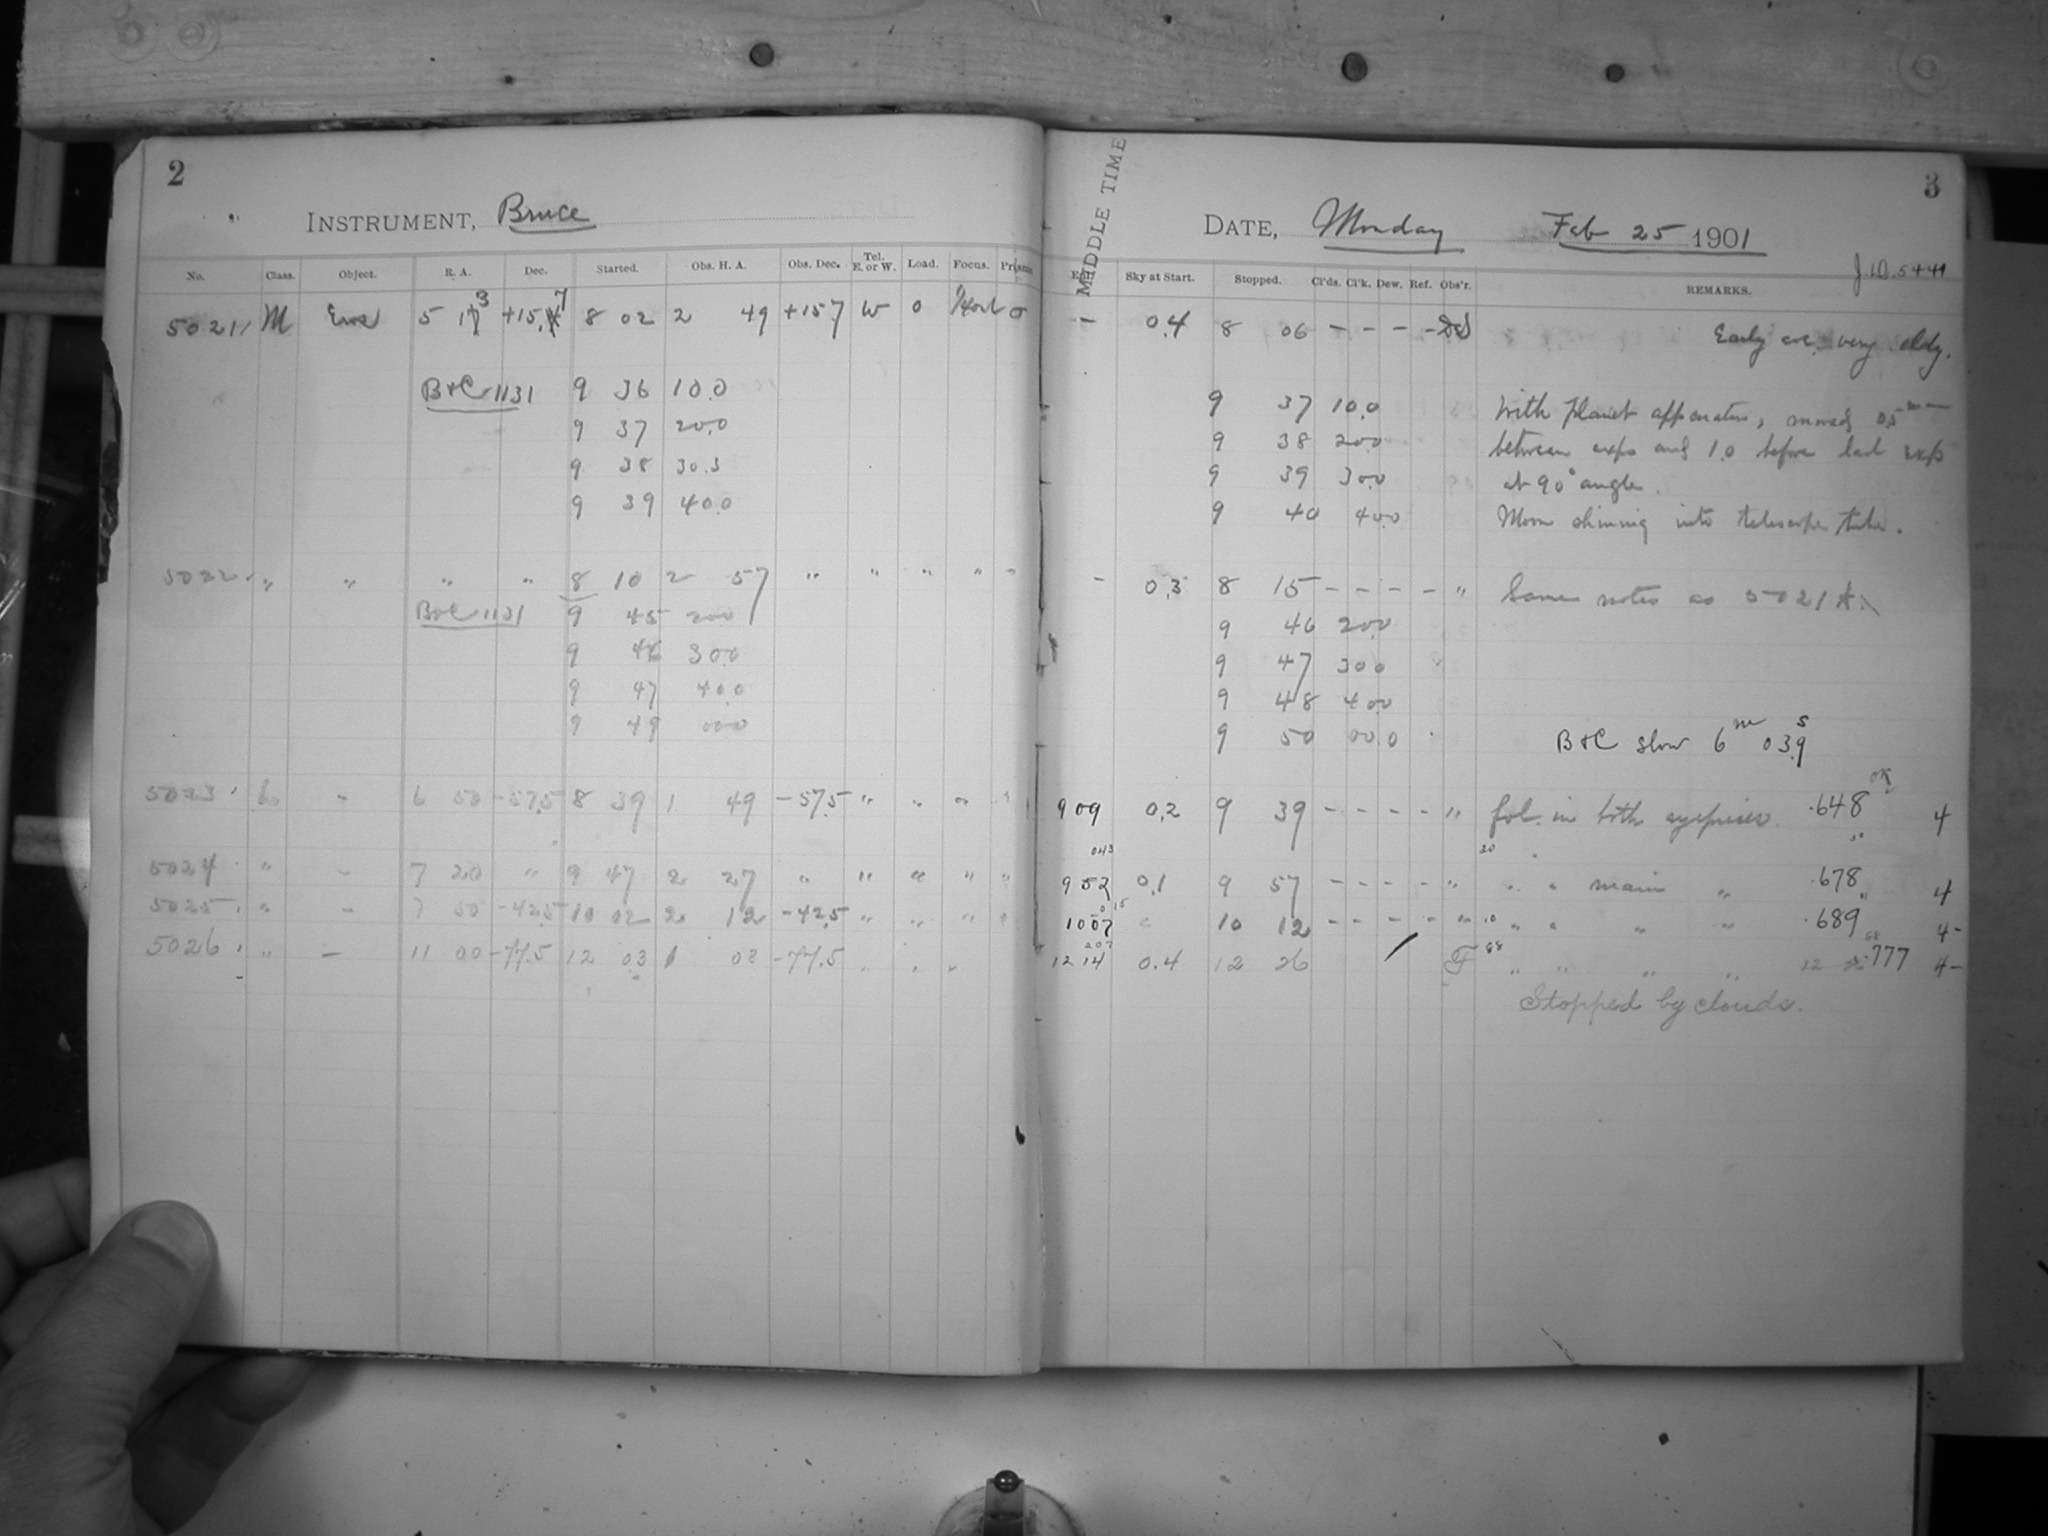 2
INSTRUMENT, Bruce
No. Class. Object. R. A. Dec. Started. Obs. H. A. Obs. Dec. Tel. E. or W. Load. Focus. Prisms
5021 M Eros 5 13 +15.7 8 02 2 49 +15.7 W 0 0
B&C 1131 9 36 10.0
9 37 20.0
9 38 30.3
9 39 40.0
5022 " " " " 8 10 2 57 " " " " "
B&C 1131 9 45 20.0
9 46 30.0
9 47 40.0
9 49 00.0
5023 - 6 50 -57.5 8 39 1 49 -57.5 " " " "
5024 " - 7 20 " 9 47 2 27 " " " " "
5025 " - 7 50 -42.5 10 02 2 12 -42.5 " " " "
5026 " - 11 00 -77.5 12 03 1 08 -77.5 " " "
3
MIDDLE TIME
DATE, Monday Feb 25 1901
J.D. 5441
Sky at Start. Stopped. Cl'ds. Cl'k. Dew. Ref. Obs'r. REMARKS.
- 0.4 8 06 - - - - Early eve. very cldy.
9 37 10.0 With planet apparatus, moved 0.5 mm
9 38 20.0 between exps and 1.0 before last exp
9 39 30.0 at 90° angle.
9 40 40.0 Moon shining into telescope tube.
- 0.3 8 15 - - - - " Same notes as 5021 A.
9 46 20.0
9 47 30.0
9 48 40.0
9 50 00.0 B&C slow 6m 03.9s
OK
9 09 0.2 9 39 - - - - " fol. in both eyepieces .648 4
043 20
9 52 0.1 9 57 - - - - " " " main " .678 4
015
10 07 " 10 12 - - - - " 10 " " " " .689 4-
207 88
12 14 0.4 12 26 F " " " " .777 4-
Stopped by clouds.